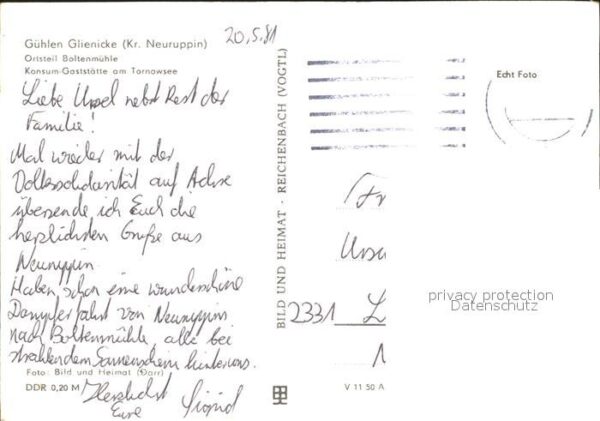 Gühlen Glienicke (Kr. Neuruppin)
Ortsteil Boltenmühle
Konsum-Gaststätte am Tornowsee
20.5.81
Liebe Ursel nebst Rest der
Familie!
Mal wieder mit der
Volkssolidarität auf Achse
übersende ich Euch die
herzlichsten Grüße aus
Neuruppin.
Haben schon eine wunderschöne
Dampferfahrt von Neuruppin
nach Boltenmühle, alle bei
strahlendem Sonnenschein hinter uns.
Foto: Bild und Heimat (Darr)
DDR 0,20 M
Herzlichst
Eure Sigrid
BILD UND HEIMAT · REICHENBACH (VOGTL)
Echt Foto
Fr
Ursu
2331 L
privacy protection
Datenschutz
V 11 50 A